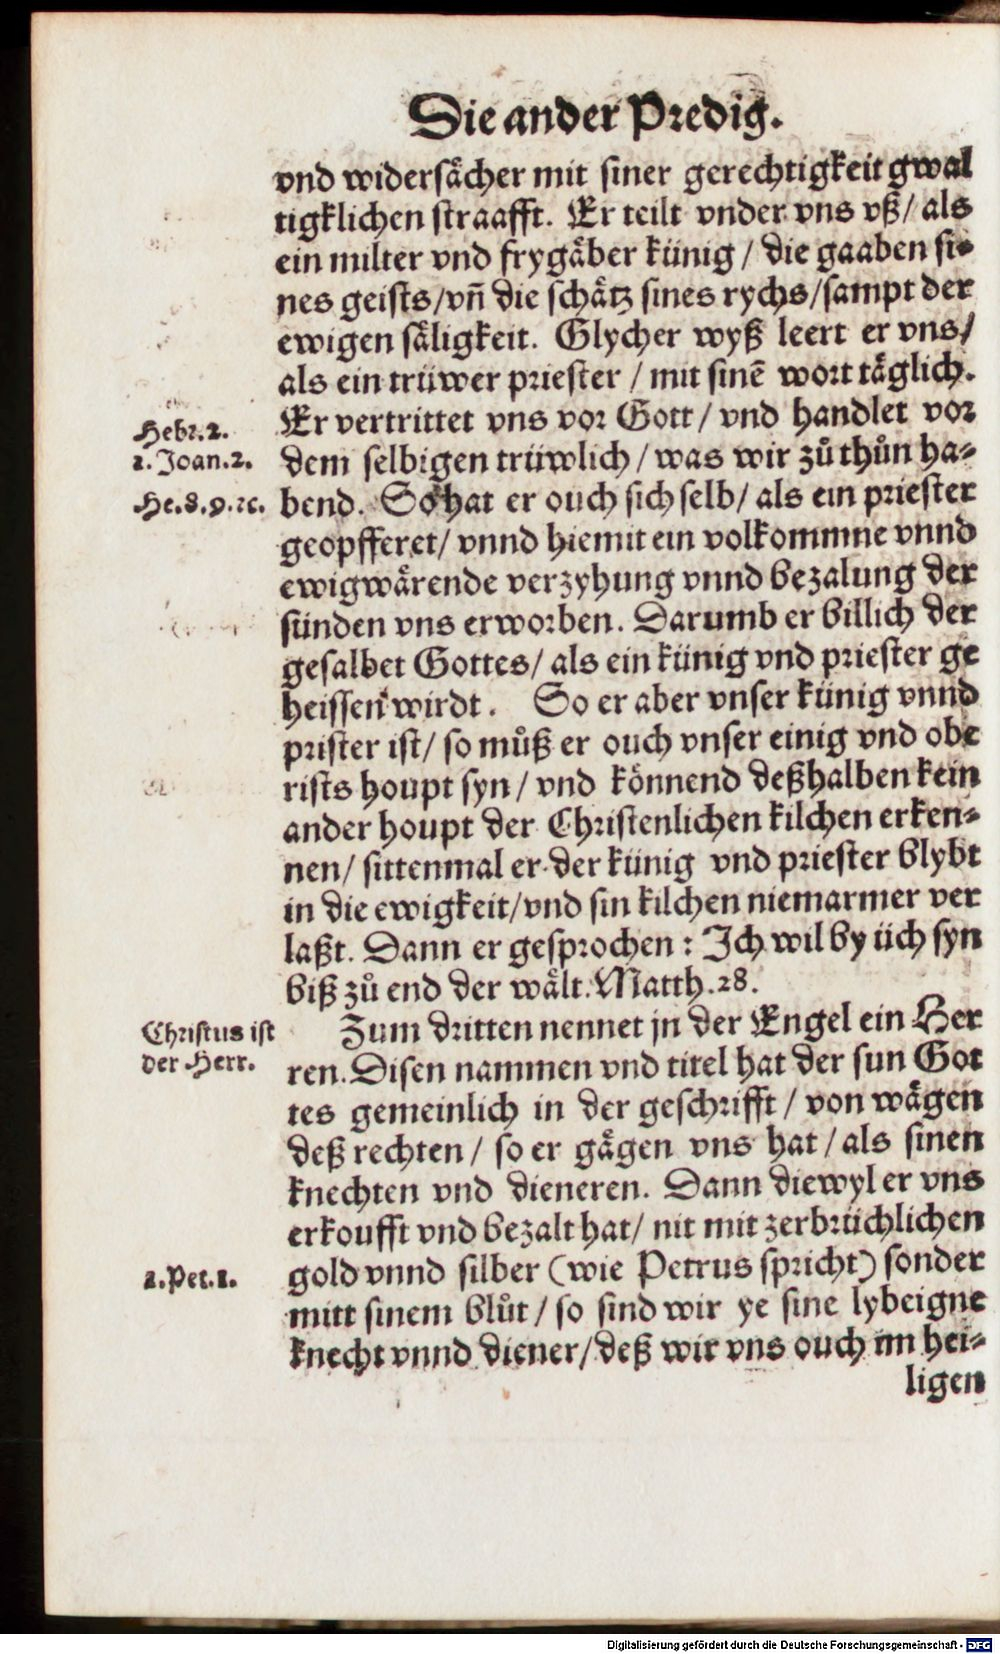 Die ander Predig.
vnd widersächer mit siner gerechtigkeit gwal
tigklichen straafft. Er teilt vnder vns vß/ als
ein milter vnd frygäber künig / die gaaben si⸗
nes geists/vñ die schätz sines rychs/sampt der
ewigen säligkeit. Glycher wyß leert er vns/
als ein trüwer priester / mit sinē wort täglich.
Hebr.2.
Er vertrittet vns vor Gott/ vnd handlet vor
1.Joan.2.
dem selbigen trüwlich/ was wir zů thůn ha⸗
He.8.9.ꝛc.
bend. So hat er ouch sich selb/ als ein priester
geopfferet/ vnnd hiemit ein volkommne vnnd
ewigwärende verzyhung vnnd bezalung der
sünden vns erworben. Darumb er billich der
gesalbet Gottes/ als ein künig vnd priester ge
heissen wirdt. So er aber vnser künig vnnd
prister ist/ so můß er ouch vnser einig vnd obe
rists houpt syn/ vnd könnend deßhalben kein
ander houpt der Christenlichen kilchen erken⸗
nen/ sittenmal er der künig vnd priester blybt
in die ewigkeit/vnd sin kilchen niemarmer ver
laßt. Dann er gesprochen : Ich wil by üch syn
biß zů end der wält. Matth.28.
Christus ist
der Herr.
Zum dritten nennet jn der Engel ein Her
ren. Disen nammen vnd titel hat der sun Got
tes gemeinlich in der geschrifft / von wägen
deß rechten / so er gägen vns hat / als sinen
knechten vnd dieneren. Dann diewyl er vns
erkoufft vnd bezalt hat/ nit mit zerbrüchlichen
1.Pet.1.
gold vnnd silber (wie Petrus spricht) sonder
mitt sinem blůt / so sind wir ye sine lybeigne
knecht vnnd diener/ deß wir vns ouch im hei⸗
ligen
Digitalisierung gefördert durch die Deutsche Forschungsgemeinschaft - DFG